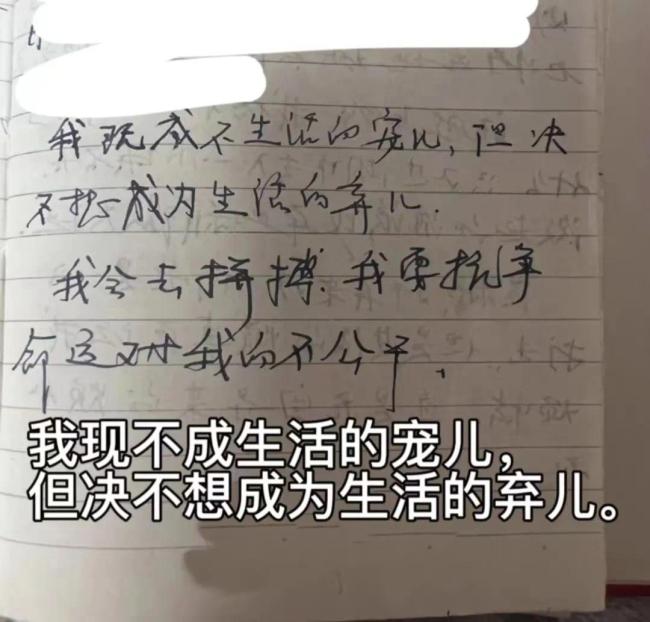 我现成不生活的宠儿，但决
不想成为生活的弃儿.
我会去拼搏.我要抗争
命运对我的不公平.
我现不成生活的宠儿，
但决不想成为生活的弃儿。